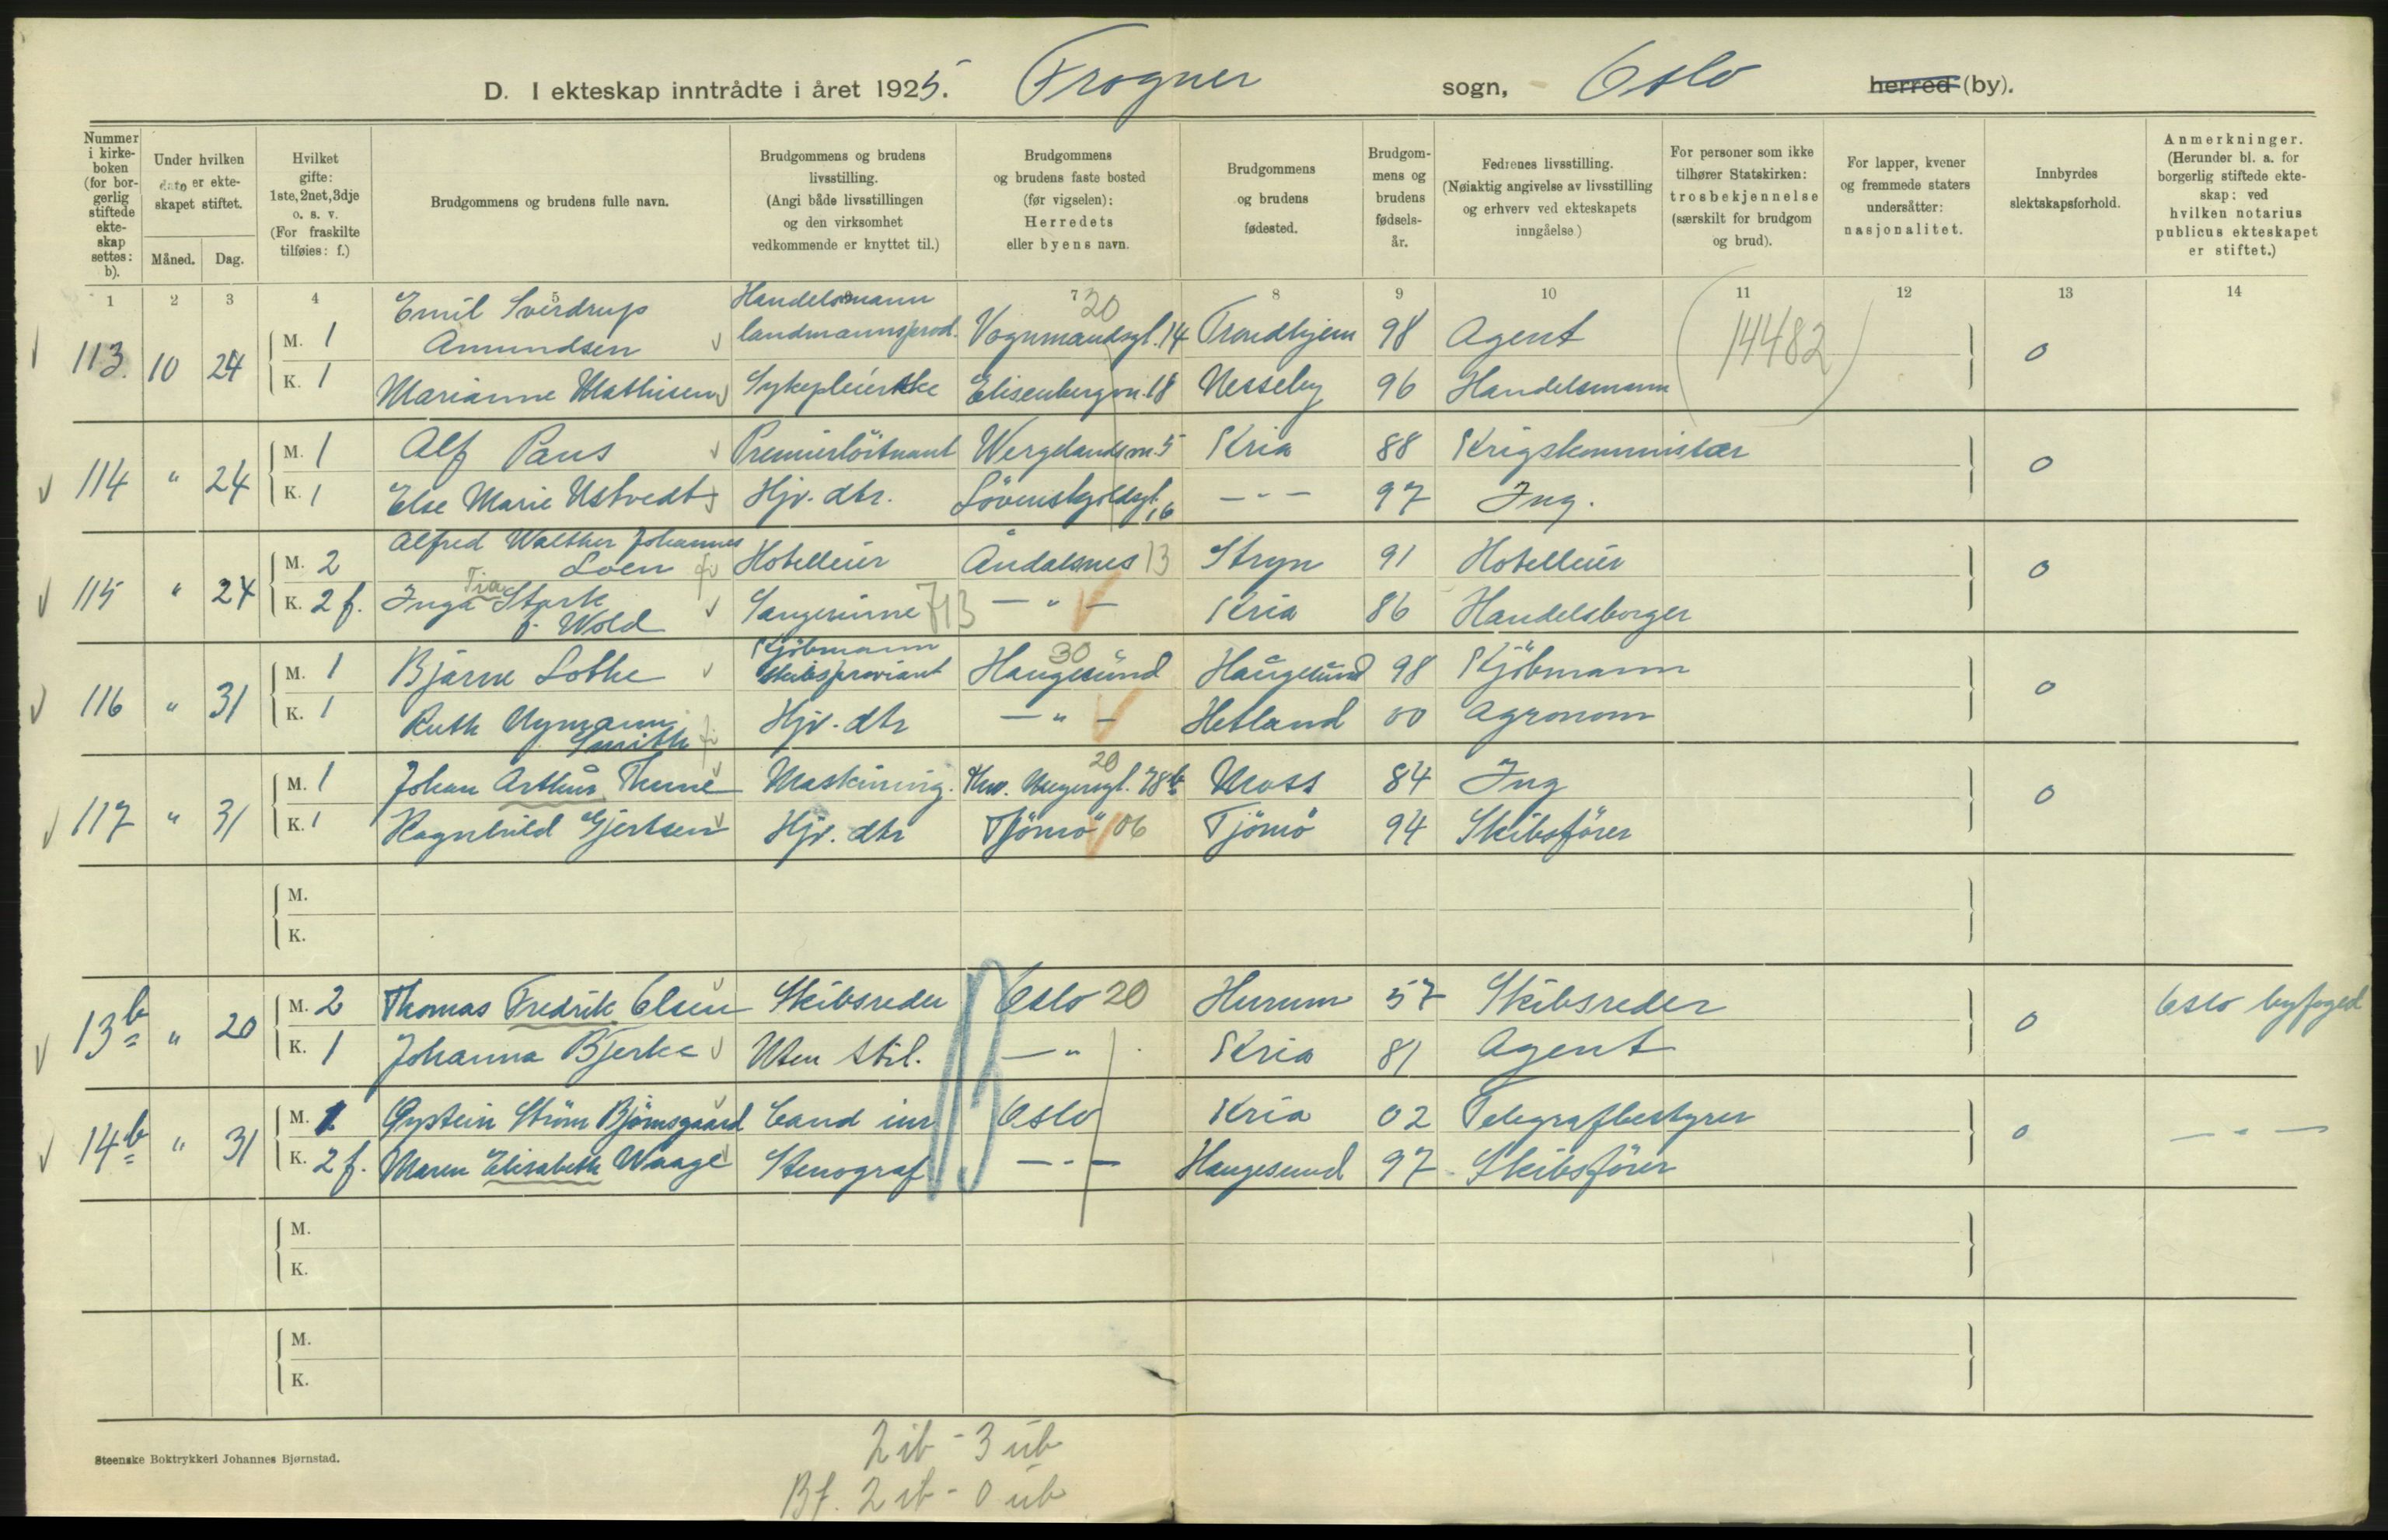 D. I ekteskap inntrådte i året 1925. Frogner sogn, Oslo herred (by).
Nummer i kirke-boken (for bor-gerlig stiftede ekte-skap settes: b).
Under hvilken dato er ekte-skapet stiftet.
Måned. Dag.
Hvilket gifte: 1ste, 2net, 3dje o. s. v. (For fraskilte tilføies: f.)
Brudgommens og brudens fulle navn.
Brudgommens og brudens livsstilling. (Angi både livsstillingen og den virksomhet vedkommende er knyttet til.)
Brudgommens og brudens faste bosted (før vigselen): Herredets eller byens navn.
Brudgommens og brudens fødested.
Brudgom-mens og brudens fødsels-år.
Fedrenes livsstilling. (Nøiaktig angivelse av livsstilling og erhverv ved ekteskapets inngåelse.)
For personer som ikke tilhører Statskirken: trosbekjennelse (særskilt for brudgom og brud).
For lapper, kvener og fremmede staters undersåtter: nasjonalitet.
Innbyrdes slektskapsforhold.
Anmerkninger. (Herunder bl. a. for borgerlig stiftede ekte-skap: ved hvilken notarius publicus ekteskapet er stiftet.)
1 2 3 4 5 6 7 8 9 10 11 12 13 14
113. 10 24 M. 1 Emil Sverdrup Amundsen Handelsmann landmannsprod. Vognmandsgt. 14 20 Trondhjem 98 Agent (14482) 0
K. 1 Marianne Mathisen Sykepleierske Elisenbergvn. 18 Nesseby 96 Handelsmann
114 " 24 M. 1 Alf Paus Premierlöitnant Wergelandsvn. 5 Kria 88 Krigskommissær 0
K. 1 Else Marie Ustvedt Hjv. dtr. Lövenskioldsgt. 16 — " — 97 Ing.
115 " 24 M. 2 Alfred Walther Johannes Loen Hotelleier Åndalsnes 13 Stryn 91 Hotelleier 0
K. 2 f. Inga Stark f. Wold Sangerinne 713 — " — Kria 86 Handelsborger
116 " 31 M. 1 Bjarne Lothe Kjöbmann skibsproviant Haugesund 30 Haugesund 98 Kjöbmann 0
K. 1 Ruth Nymann Smith Hjv. dtr — " — Hetland 00 Agronom
117 " 31 M. 1 Johan Arthur Thune Maskining. 20 Moss 84 Ing 0
K. 1 Ragnhild Gjertsen Hjv. dtr Tjömö 06 Tjömö 94 Skibsförer
M.
K.
13 b " 20 M. 2 Thomas Fredrik Olsen Skibsreder Oslo 20 Hurum 57 Skibsreder 0 Oslo byfoged
K. 1 Johanna Bjerke Uten stil. — " Kria 81 Agent
14 b " 31 M. 1 Øystein Ström Björnsgaard Cand iur Oslo Kria 02 Telegrafbestyrer 0 — " —
K. 2 f. Maren Elisabeth Waage Stenograf — " — Haugesund 97 Skibsförer
M.
K.
M.
K.
Steenske Boktrykkeri Johannes Bjørnstad.
2 ib - 3 ub
Bf. 2 ib - 0 ub